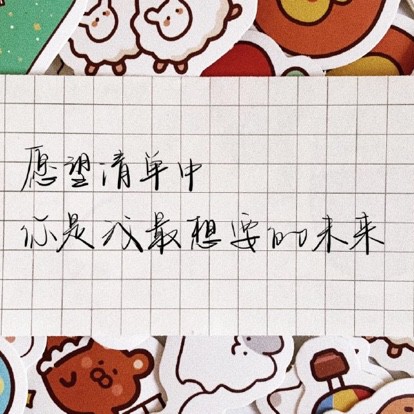 愿望清单中
你是我最想要的未来